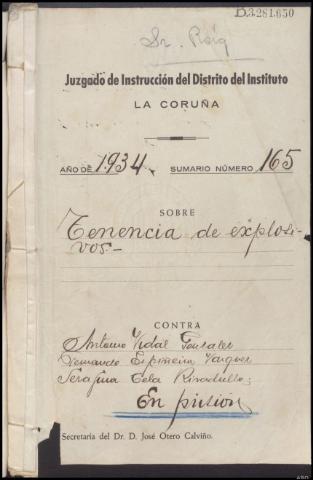 D.3.281.650
Sr. Roig
Juzgado de Instrucción del Distrito del Instituto
LA CORUÑA
AÑO DE 1934. SUMARIO NÚMERO 165
SOBRE
Tenencia de explosi-
vos-
CONTRA
Antonio Vidal
Espiñeira Vazquez
Serafina Cela
En prisión
Secretaría del Dr. D. José Otero Calviño.